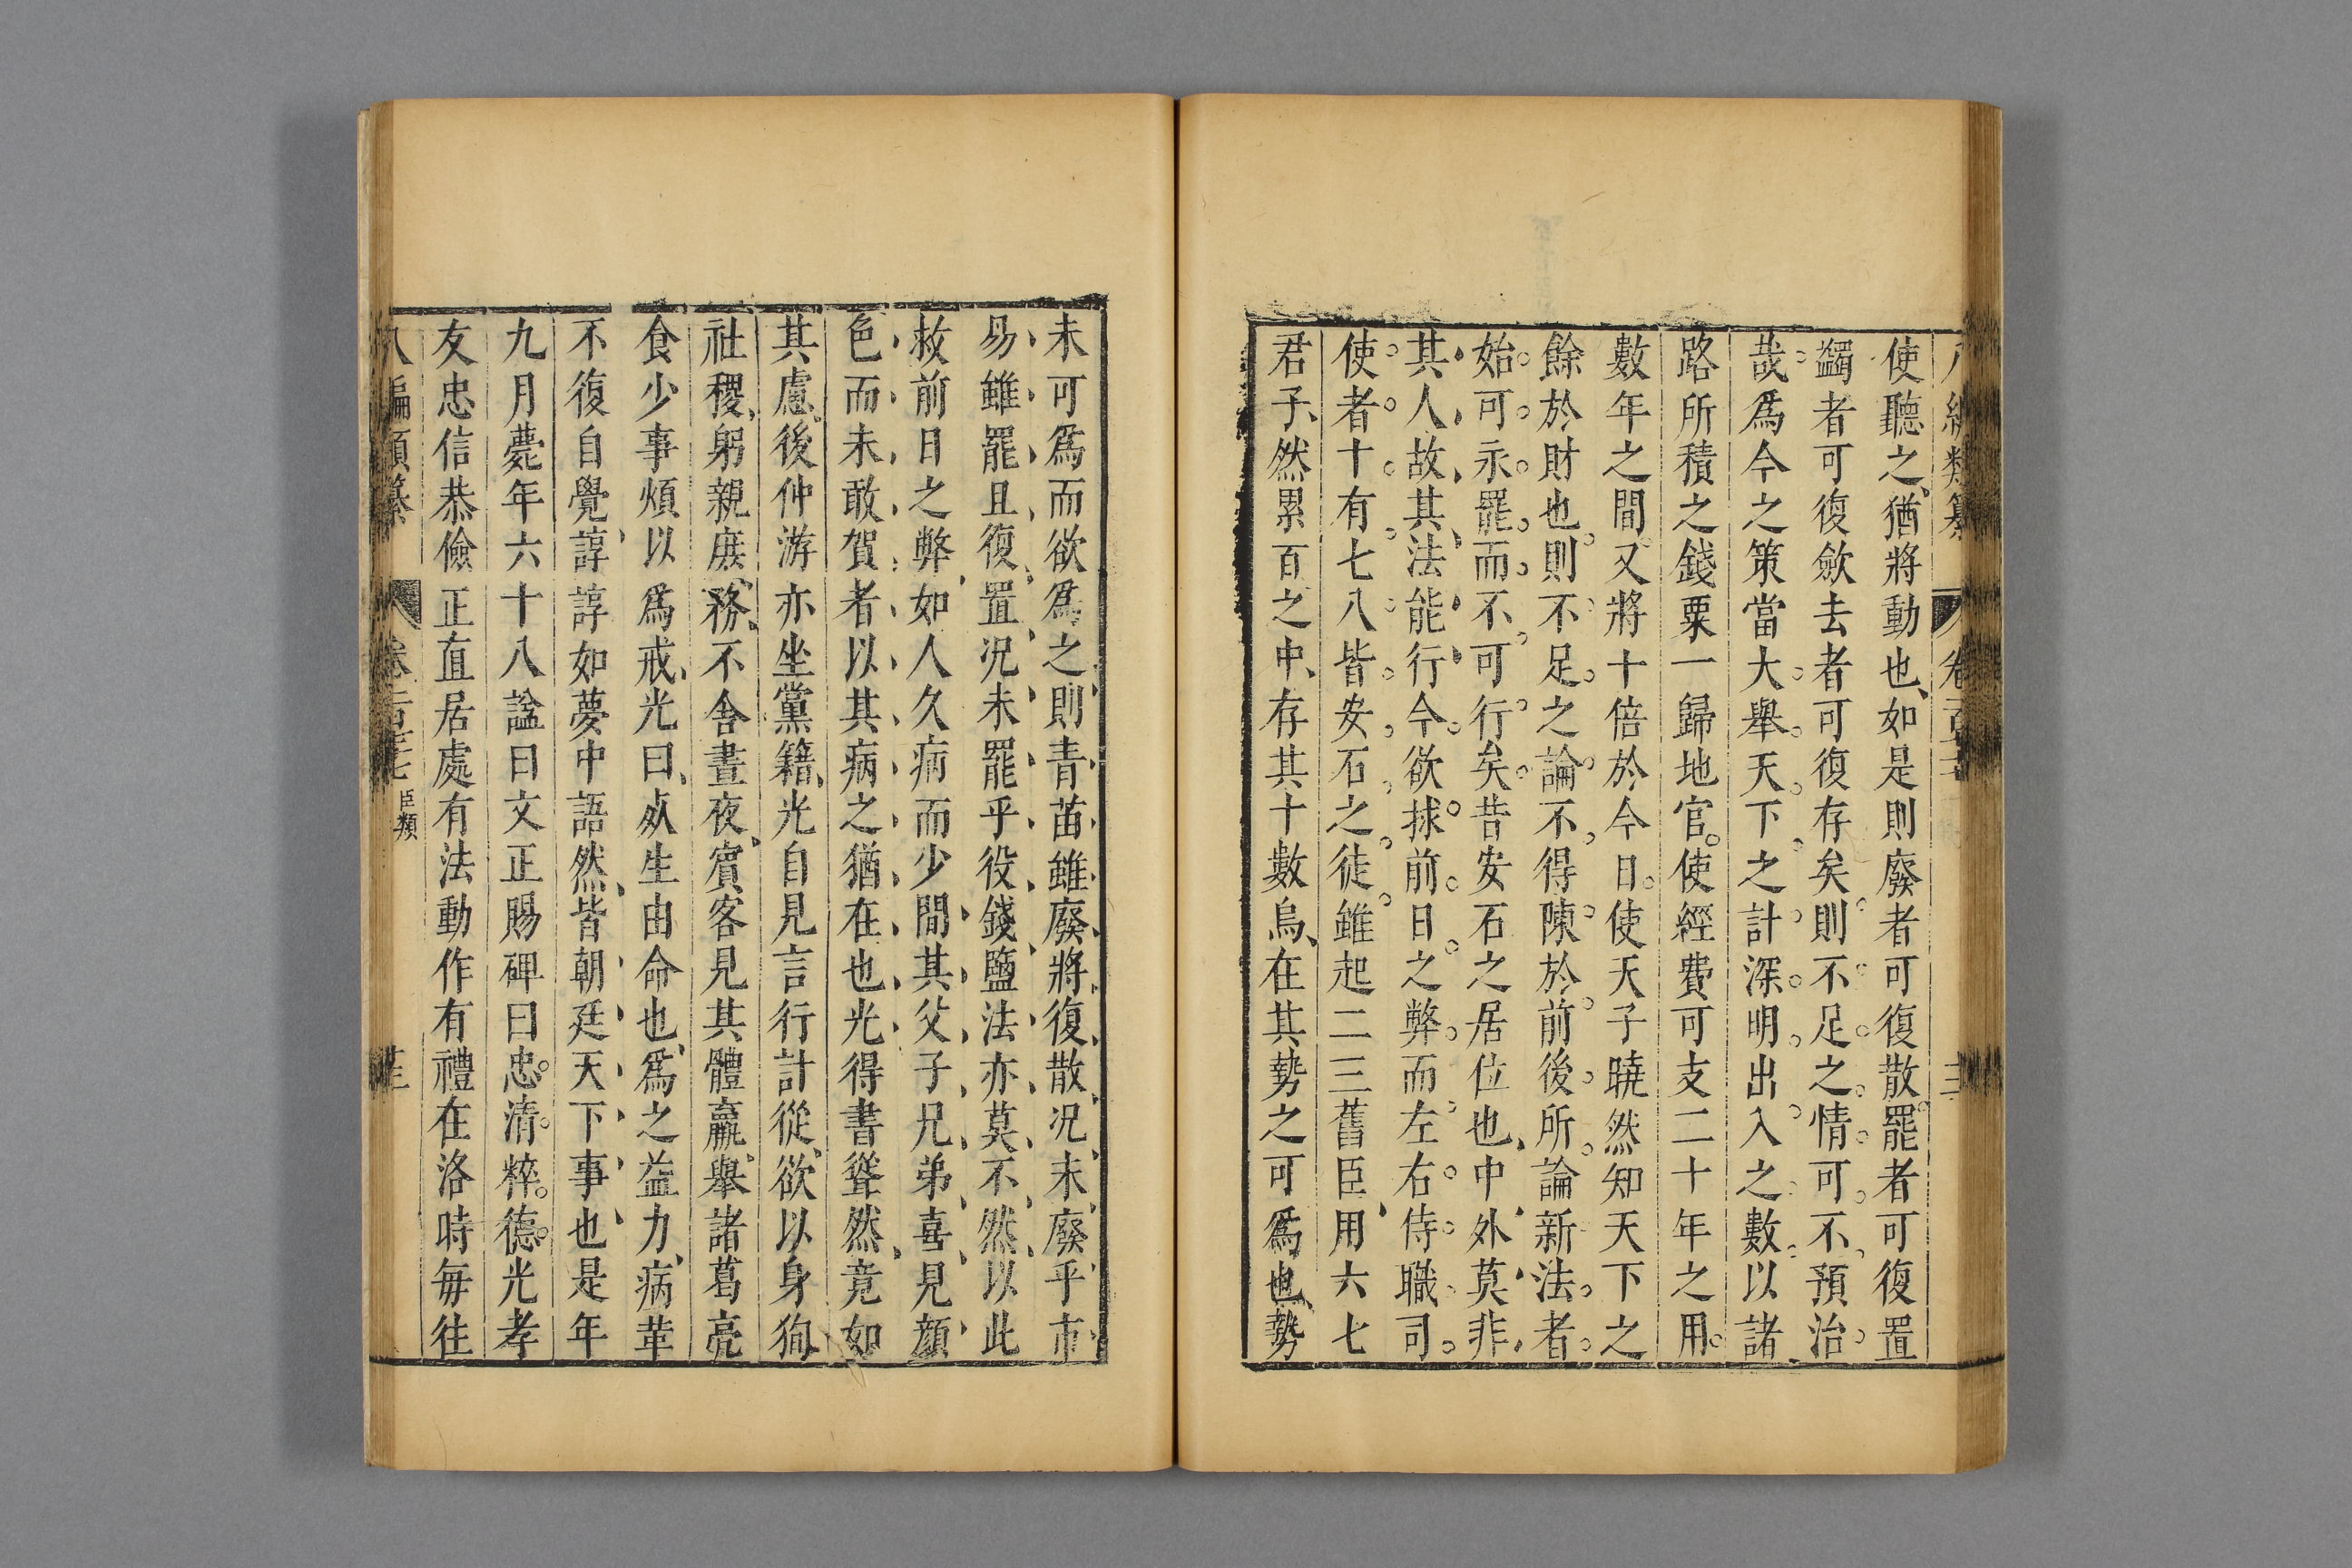 使聽之、猶將動也、如是則廢者可復散。罷者可復置
蠲者可復歛去者可復存矣。則不足之情可不預治
哉。爲今之策當大舉天下之計深明出入之數以諸
路所積之錢粟一歸地官。使經費可支二十年之用。
數年之間。又將十倍於今日。使天子曉然知天下之
餘於財也。則不足之論不得陳於前後所論新法者。
始可永罷而不可行矣。昔安石之居位也、中外莫非
其人、故其法能行今欲捄前日之弊而左右侍職司。
使者十有七八皆安石之徒。雖起二三舊臣、用六七
君子、然累百之中、存其十數烏、在其勢之可爲也、勢
未可爲而欲爲之則青苗雖廢將復散况未廢乎市
易雖罷且復置况未罷乎役錢鹽法亦莫不然以此
救前日之弊如人久病而少間其父子兄弟喜見顔
色而未敢賀者以其病之猶在也光得書聳然竟如
其慮、後仲游亦坐黨籍、光自見言行計從、欲以身狥
社稷、躬親庶務、不舍晝夜、賓客見其體羸、舉諸葛亮
食少事煩以爲戒、光曰、死生由命也、爲之益力、病革
不復自覺、諄諄如夢中語然、皆朝廷天下事也是年
九月薨年六十八諡曰文正賜碑曰忠清粹德光孝
友忠信恭儉正直居處有法動作有禮在洛時每往
編類纂
臣類